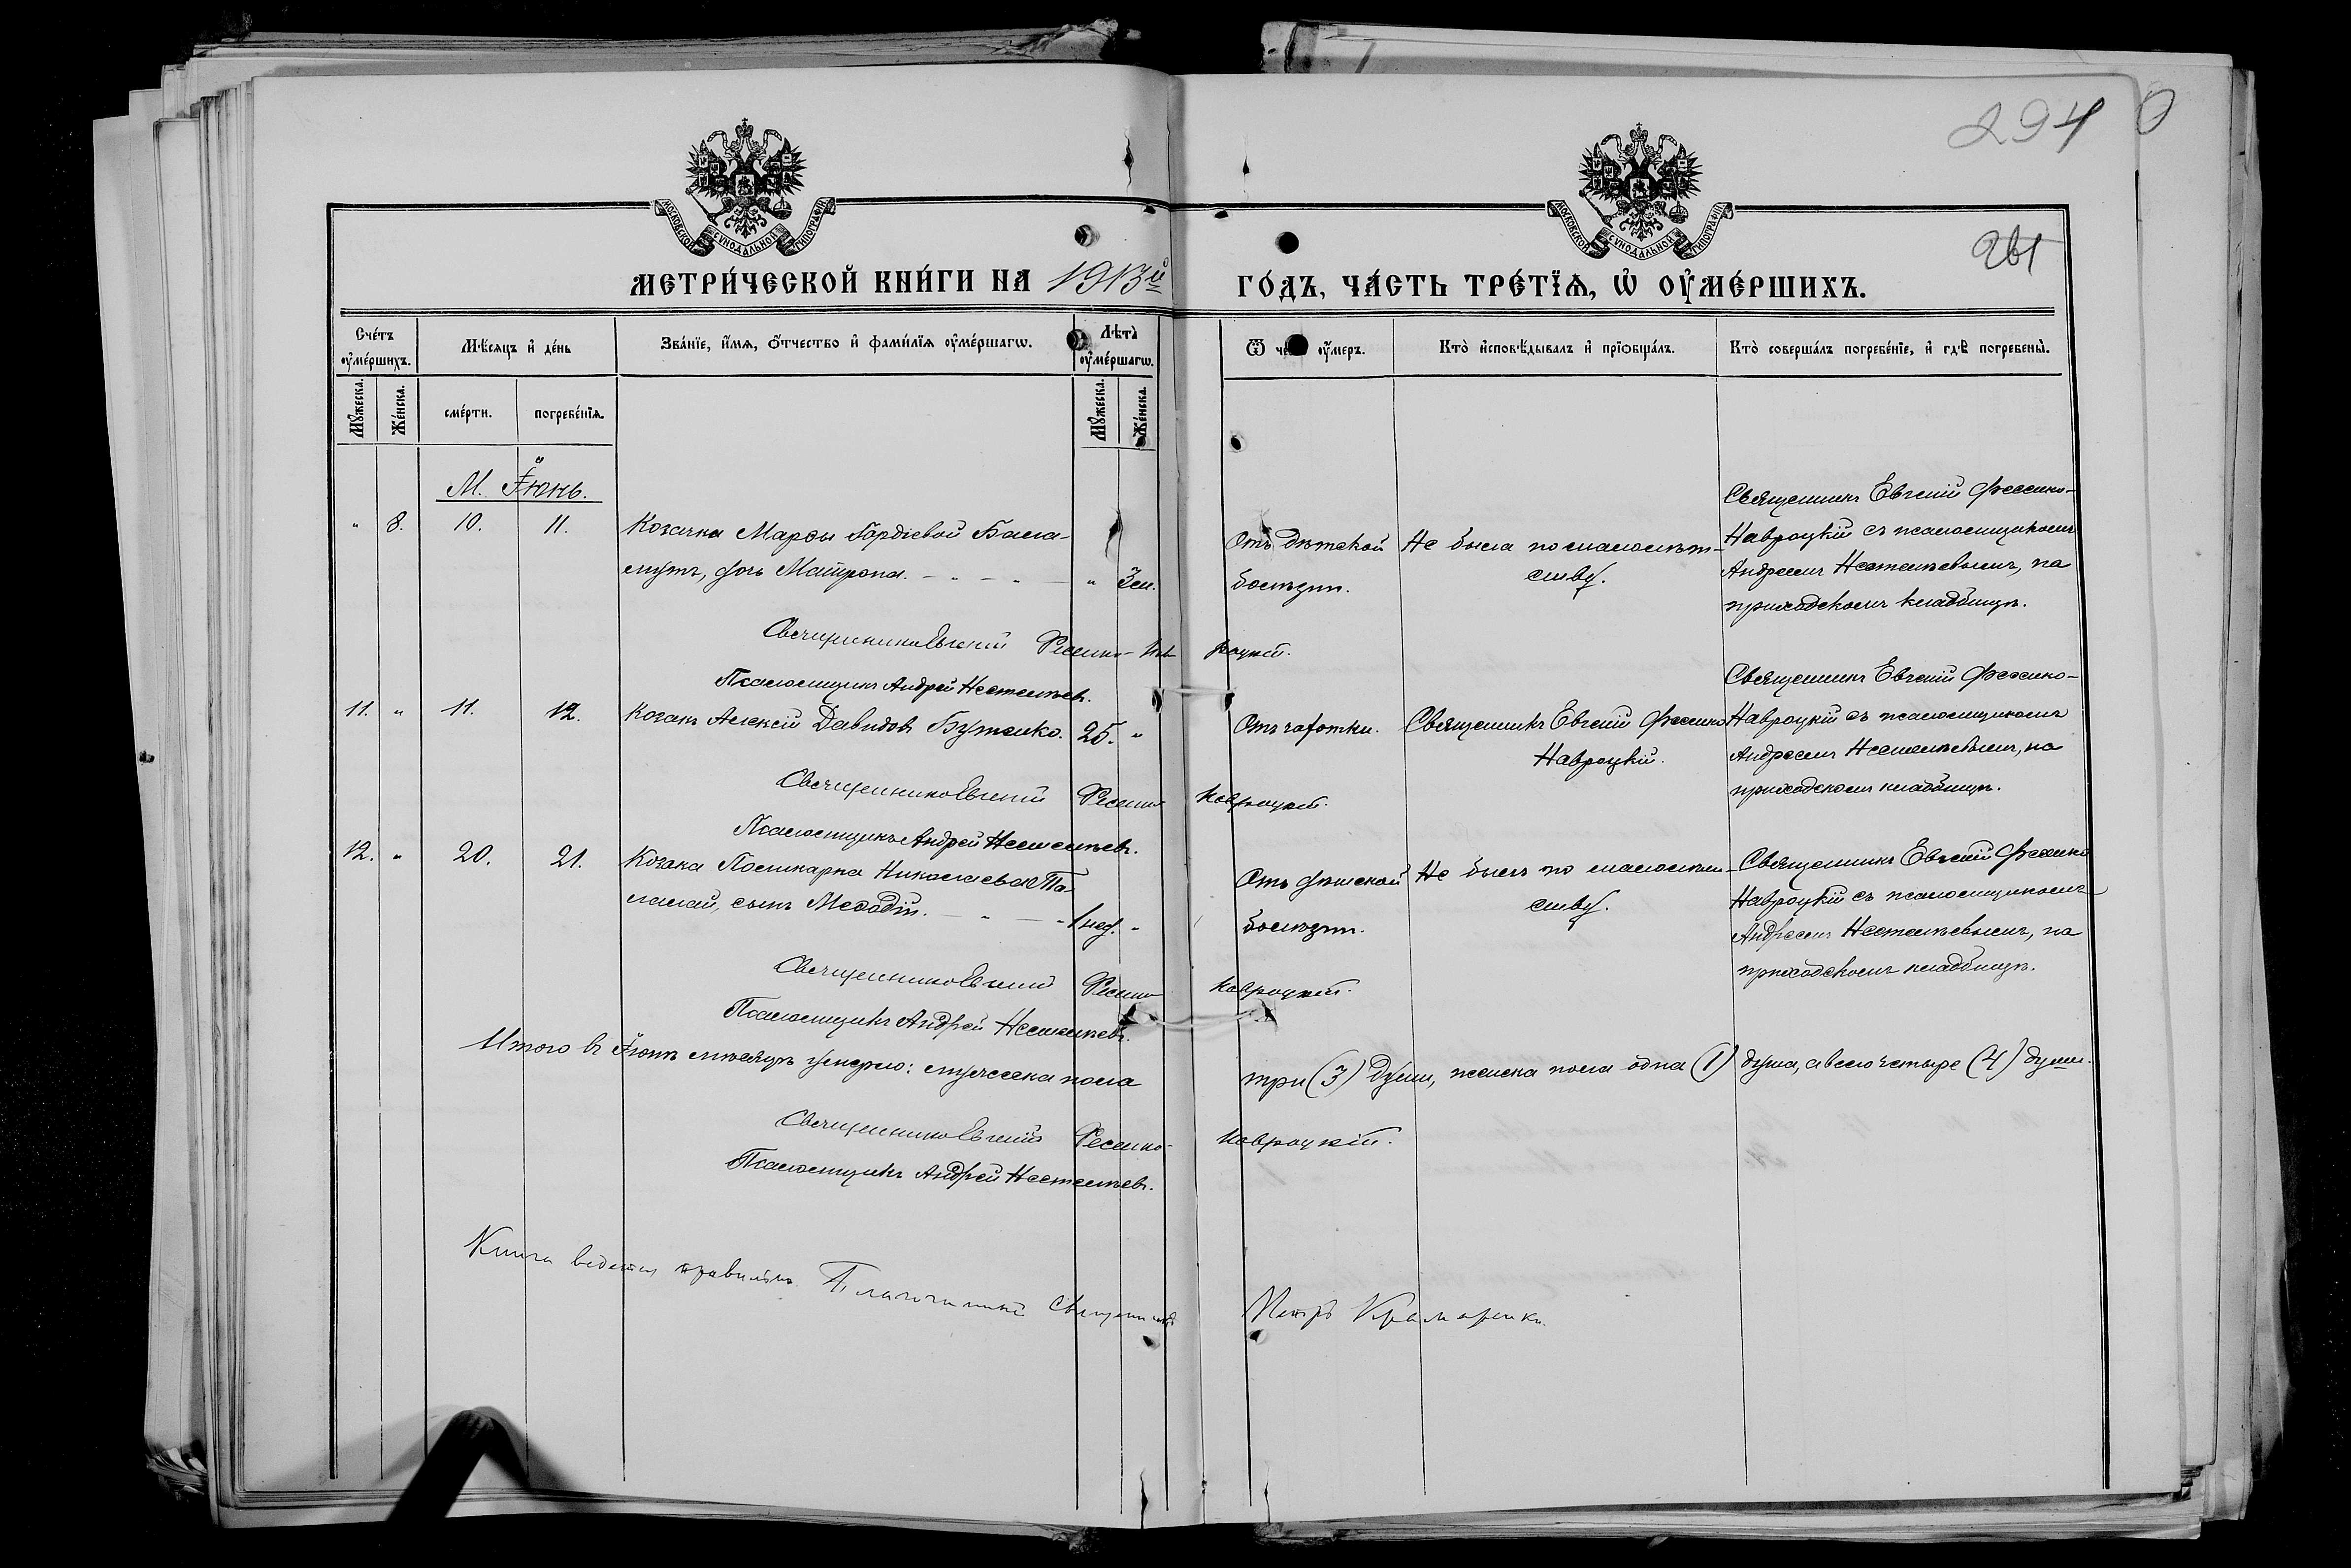 294
261
МОСКОВСКОЙ СѴНОДАЛЬНОЙ ТИПОГРАФІИ
МОСКОВСКОЙ СѴНОДАЛЬНОЙ ТИПОГРАФІИ
МЕТРИ́ЧЕСКОЙ КНИ́ГИ НА 1913й ГО́ДЪ, ЧА́СТЬ ТРЕ́ТЇѦ, Ѡ҆ ОУ҆МЕ́РШИХЪ.
Сче́тъ оу҆ме́ршихъ.
Мѣ́сяцъ и҆ де́нь
Зва́нїе, и҆́мѧ, ѻ҆́тчество и҆ фами́лїѧ оу҆ме́ршагѡ.
Лѣ́та оу҆ме́ршагѡ.
Ѿ чегѡ̀ оу҆́меръ.
Кто̀ и҆сповѣ́дывалъ и҆ прїобща́лъ.
Кто̀ соверша́лъ погребе́нїе, и҆ гдѣ̀ погребены̀.
Мꙋ́жеска.
Же́нска.
сме́рти.
погребе́нїѧ.
Мꙋ́жеска.
Же́нска.
М. Іюнь.
" 8. 10. 11. Козачки Марѳы Гордіевой Бала-
мутъ, дочь Матрона. - " - " - " 3 м.
Отъ дѣтской
болѣзни.
Не была по малолѣт-
ству.
Священникъ Евгеній Фесенко-
Навроцкій съ псаломщикомъ
Андреемъ
приходскомъ кладбищѣ.
Священникъ Евгеній Фесенко-Навроцкій.
Псаломщикъ Андрей
11. " 11. 12. Козакъ Алексій Давидовъ Бутенко. 25. "
Отъ чахотки.
Священникъ Евгеній Фесенко
Навроцкій.
Священникъ Евгеній Фесенко-
Навроцкій съ псаломщикомъ
Андреемъ на
приходскомъ кладбищѣ.
Священникъ Евгеній Фесенко Навроцкій.
Псаломщикъ Андрей
12. " 20. 21. Козака Поликарпа Николаева Та-
лалай, сынъ Меѳодій. - " - 1 нед. "
Отъ дѣтской
болѣзни.
Не былъ по малолѣт-
ству.
Священникъ Евгеній Фесенко
Навроцкій съ псаломщикомъ
Андреемъ на
приходскомъ кладбищѣ.
Священникъ Евгеній Фесенко Навроцкій.
Псаломщикъ Андрей
Итого въ Іюнѣ мѣсяцѣ умерло: мужеска пола три (3) души, женска пола одна (1) душа, а всего четыре (4) души.
Священникъ Евгеній Фесенко-Навроцкій.
Псаломщикъ Андрей
Книга ведется правильно. Благочинный Священникъ Петръ Крамаренко.